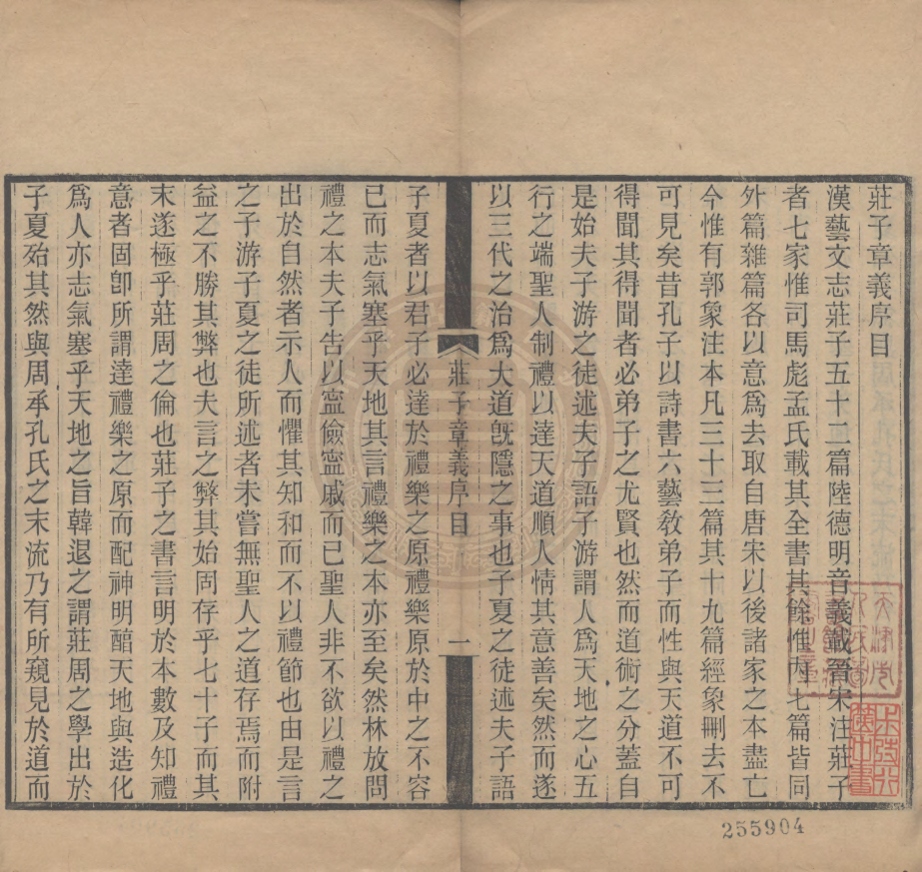 莊子章義序目
漢藝文志莊子五十二篇陸德明音義載晉宋注莊子
者七家惟司馬彪孟氏載其全書其餘惟內七篇皆同
外篇雜篇各以意爲去取自唐宋以後諸家之本盡亡
今惟有郭象注本凡三十三篇其十九篇經象刪去不
可見矣昔孔子以詩書六藝敎弟子而性與天道不可
得聞其得聞者必弟子之尤賢也然而道術之分蓋自
是始夫子游之徒述夫子語子游謂人爲天地之心五
行之端聖人制禮以達天道順人情其意善矣然而遂
以三代之治爲大道旣隱之事也子夏之徒述夫子語
莊子章義序目
一
子夏者以君子必達於禮樂之原禮樂原於中之不容
已而志氣塞乎天地其言禮樂之本亦至矣然林放問
禮之本夫子告以寍儉寍戚而已聖人非不欲以禮之
出於自然者示人而懼其知和而不以禮節也由是言
之子游子夏之徒所述者未嘗無聖人之道存焉而附
益之不勝其弊也夫言之弊其始固存乎七十子而其
末遂極乎莊周之倫也莊子之書言明於本數及知禮
意者固卽所謂達禮樂之原而配神明醕天地與造化
爲人亦志氣塞乎天地之旨韓退之謂莊周之學出於
子夏殆其然與周承孔氏之末流乃有所窺見於道而
255904